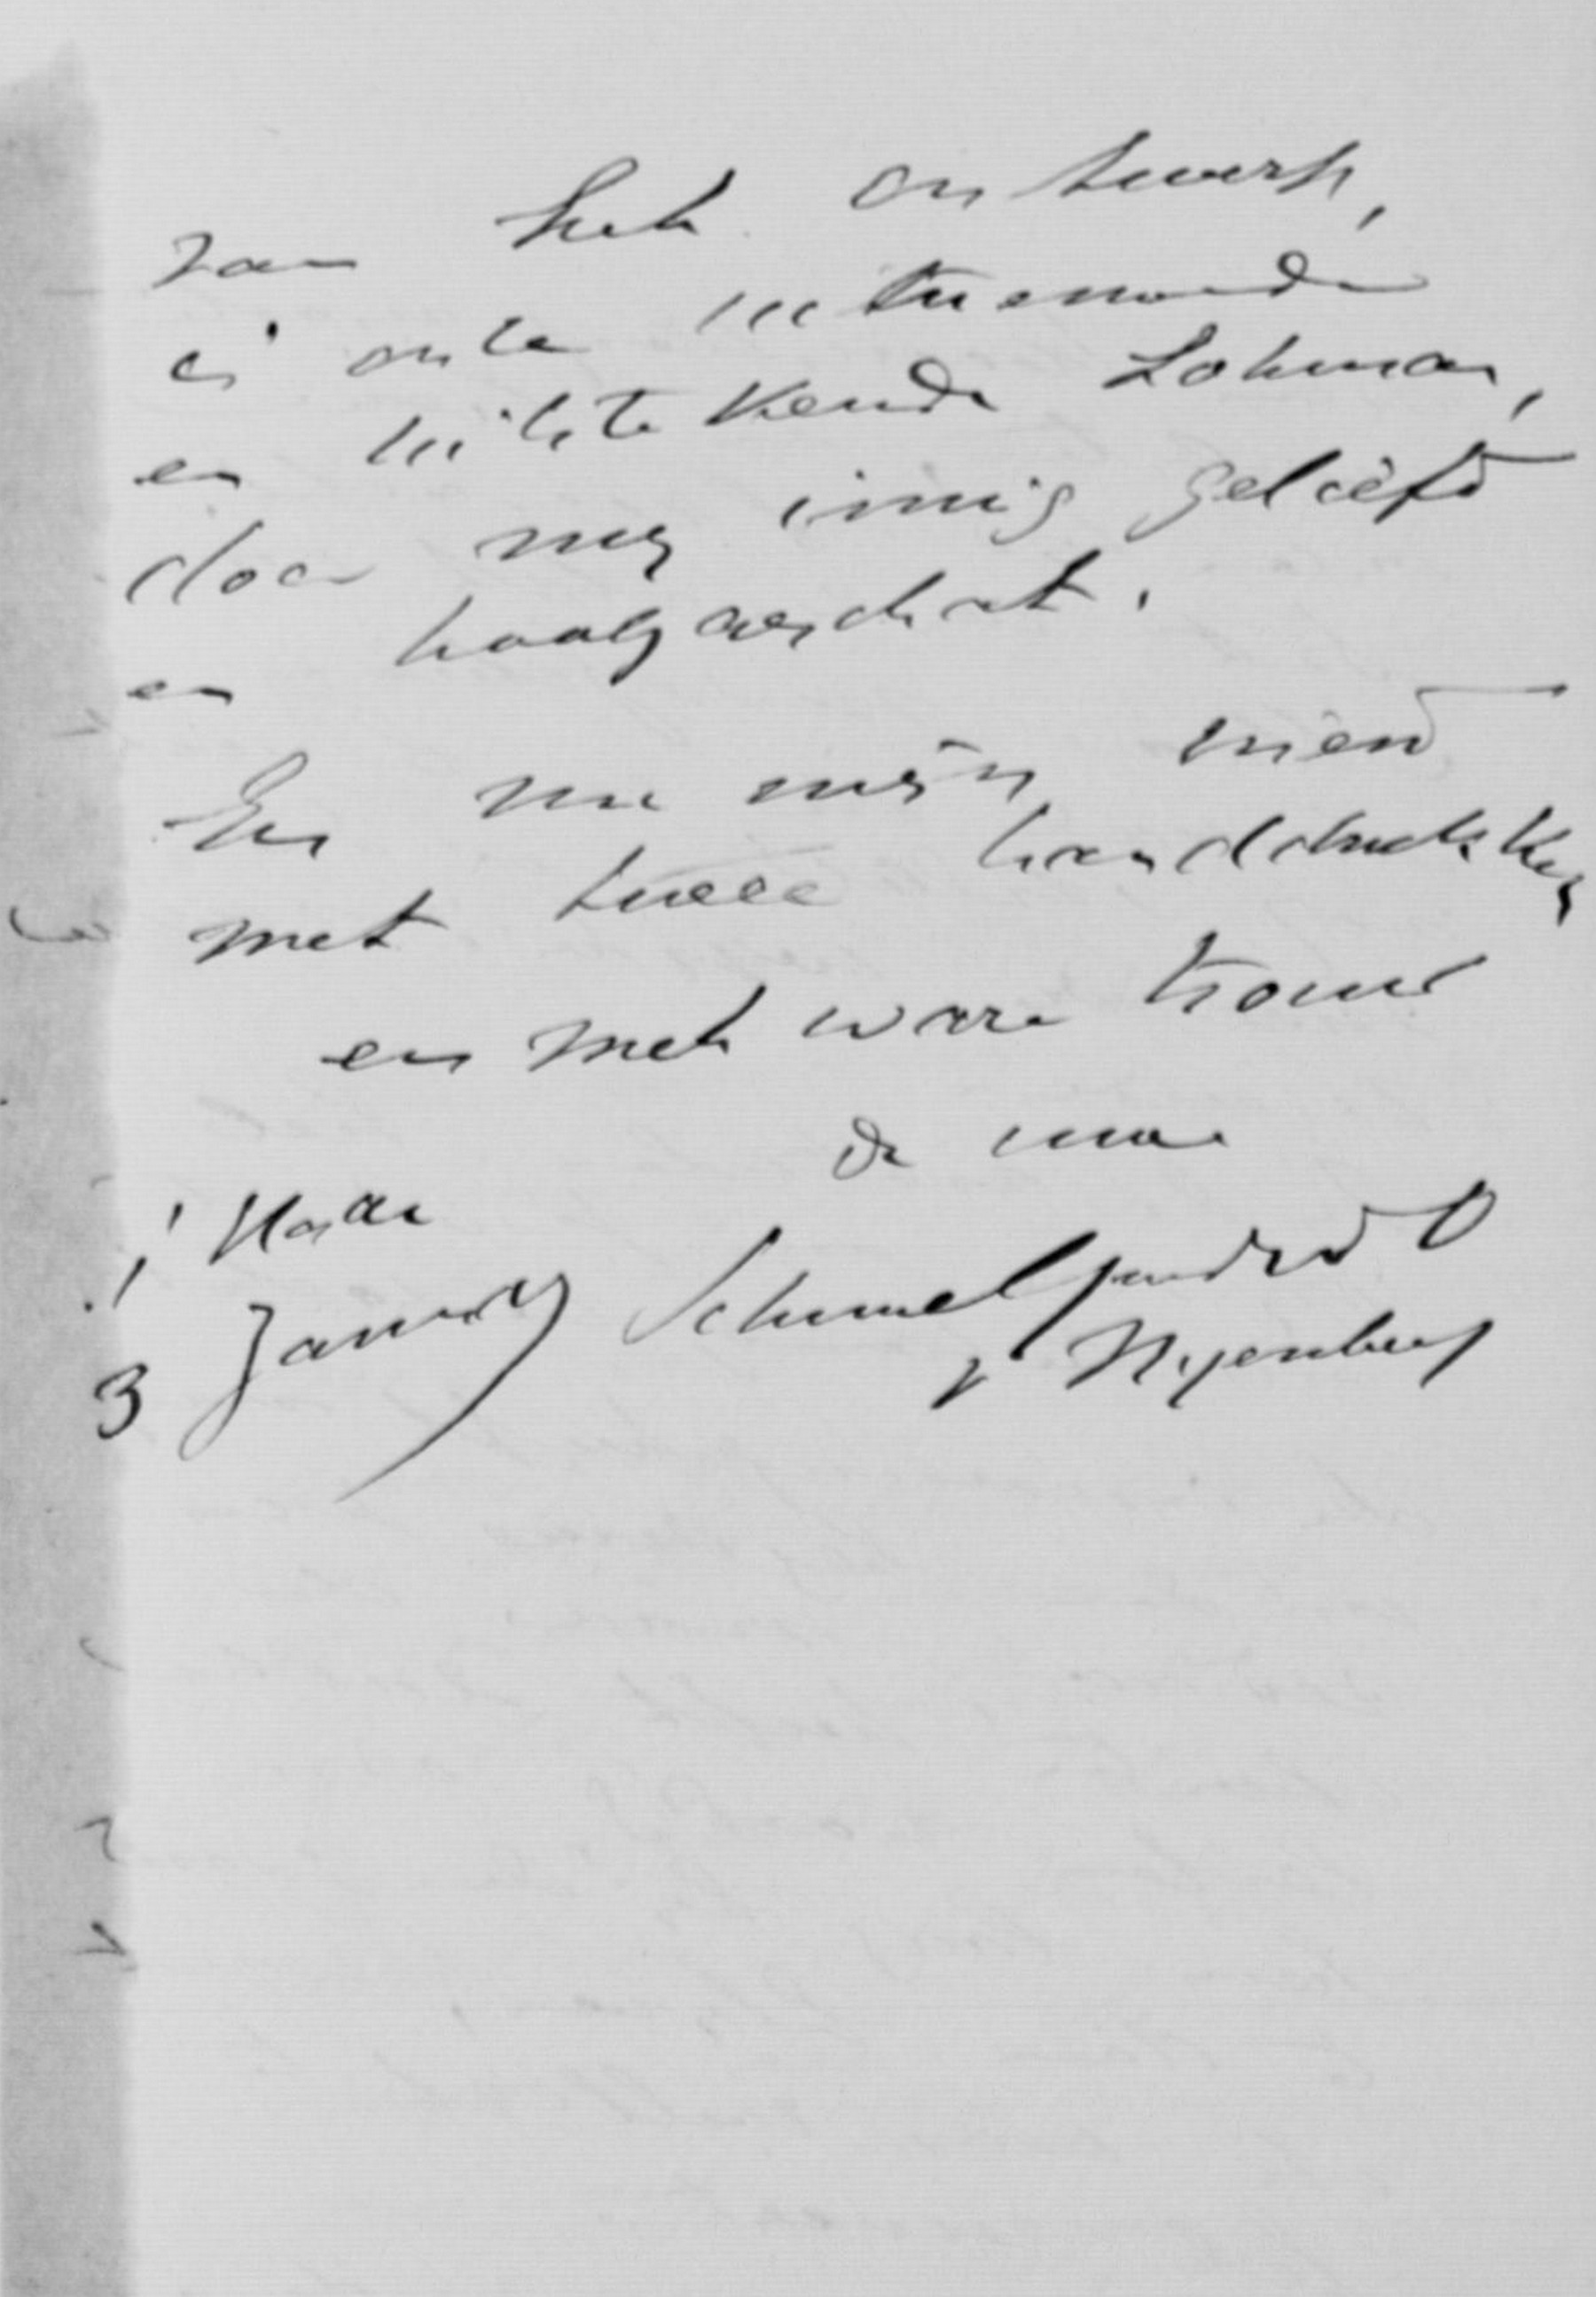 van het ontwerp,
is onze uitnemende
en uitstekende Lohman,
door my innig geliefd
en hoog geacht.
En nu mijn vriend
met twee handdrukken
en met ware trouw
de uwe
's Haage
3 January Schimmelpenninck
v Nyenbeek